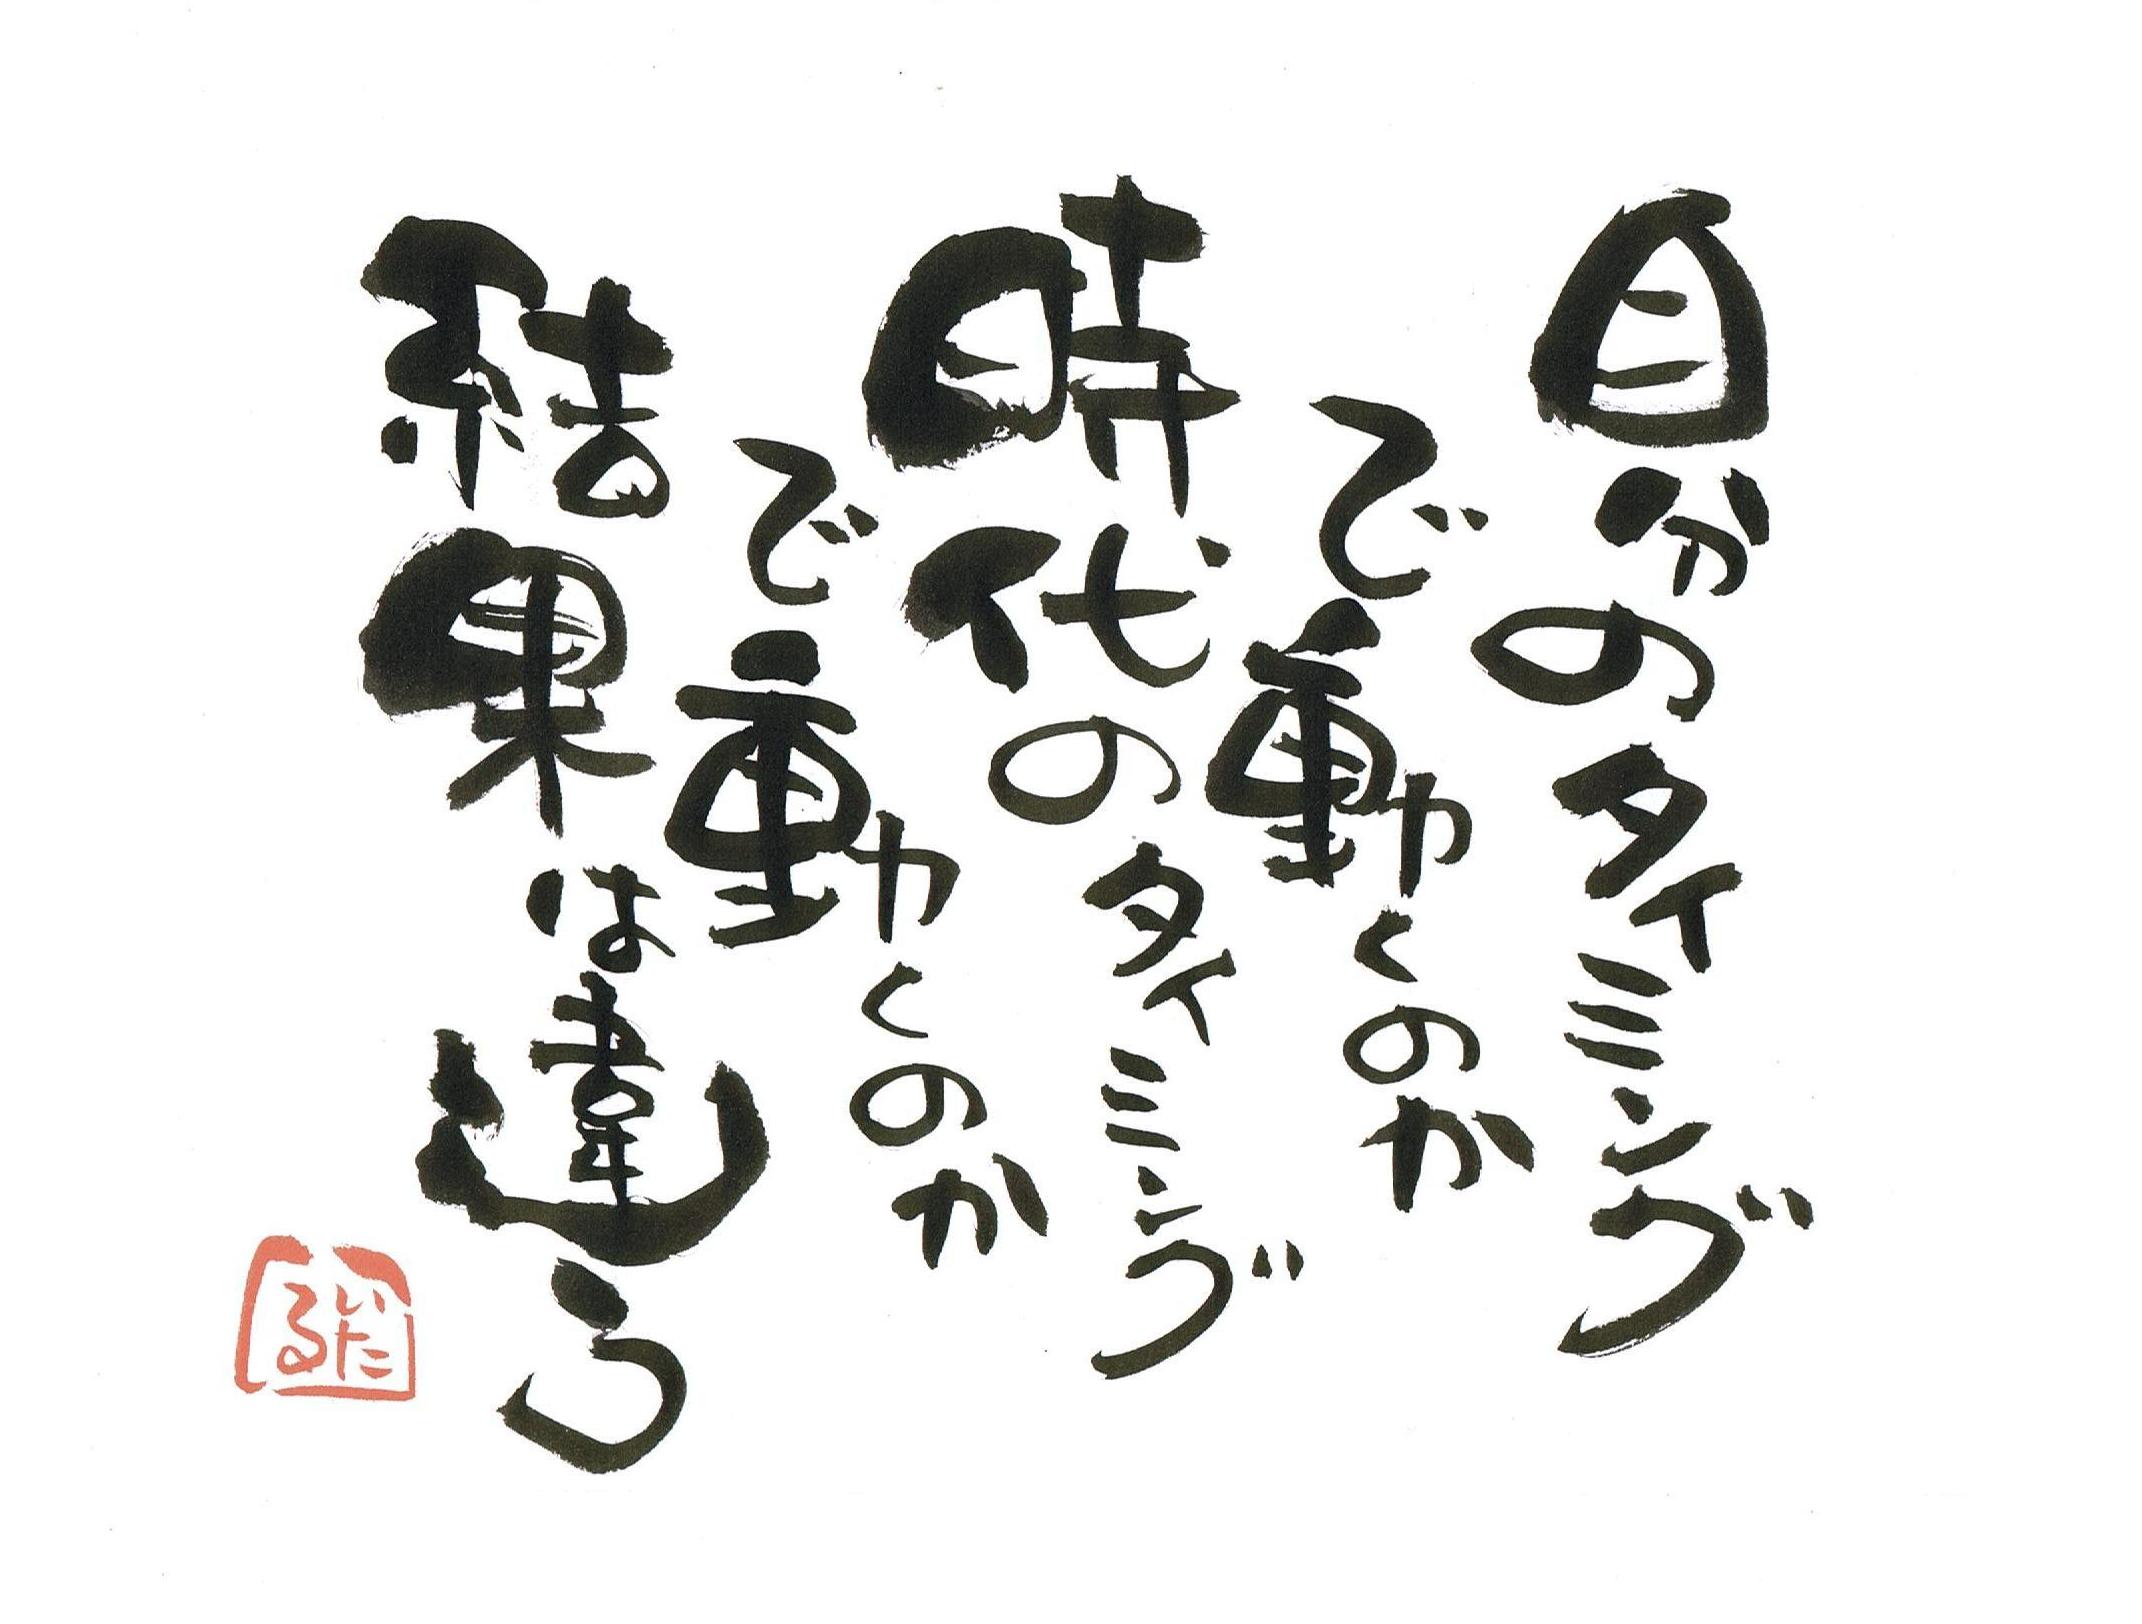 自分のタイミング
で動くのか
時代のタイミング
で動くのか
結果は違う
いた
る